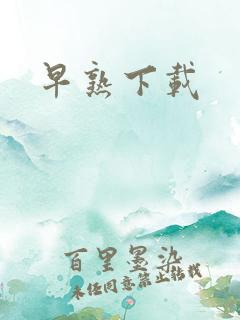 早熟下載
百里墨染
未经同意禁止转载